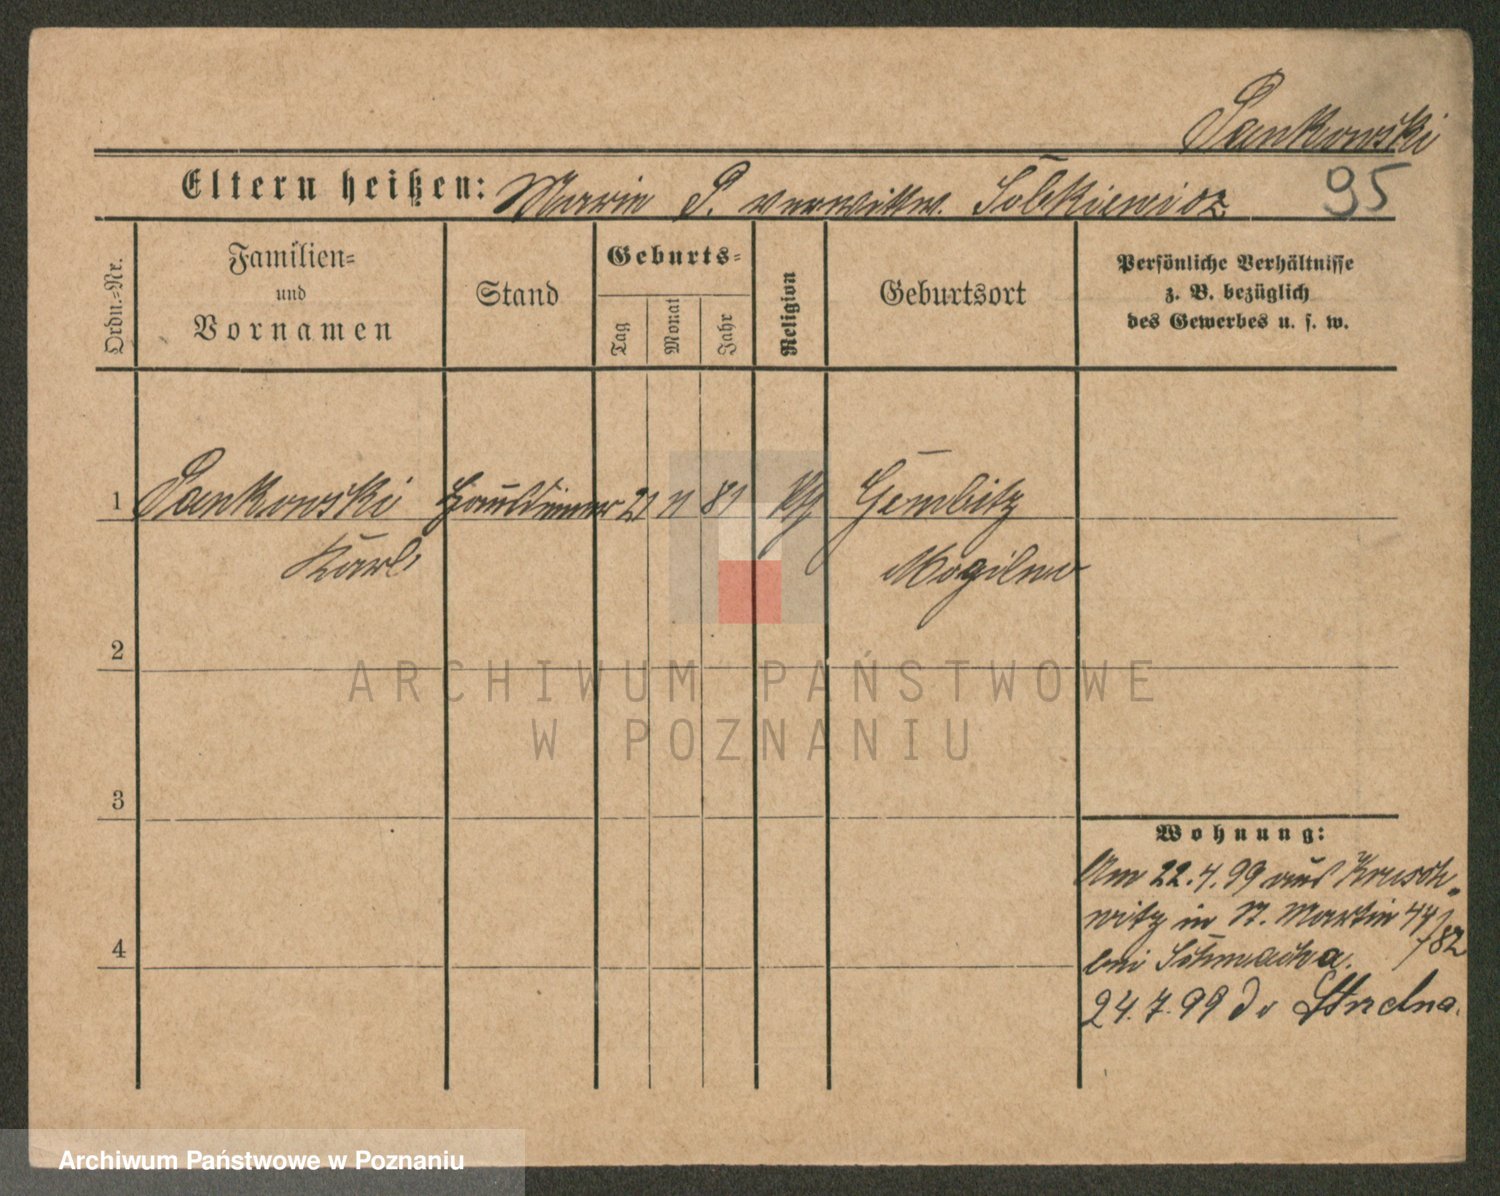 Pankowski
Eltern heißen: Marie P. verwittw. Sobkiewicz
95
Ordn.-Nr.
Familien-
und
Vornamen
Stand
Geburts-
Tag
Monat
Jahr
Religion
Geburtsort
Persönliche Verhältnisse
z. B. bezüglich
des Gewerbes u. s. w.
1 Pankowski Hausdiener 21 81 Gembitz
Karl Mogilno
2
3
4
Wohnung:
Am 22.4.99 aus Krusch-
witz in St. Martin 44/
782
bei
24.7.99 Strelno.
ARCHIWUM PAŃSTWOWE
W POZNANIU
Archiwum Państwowe w Poznaniu